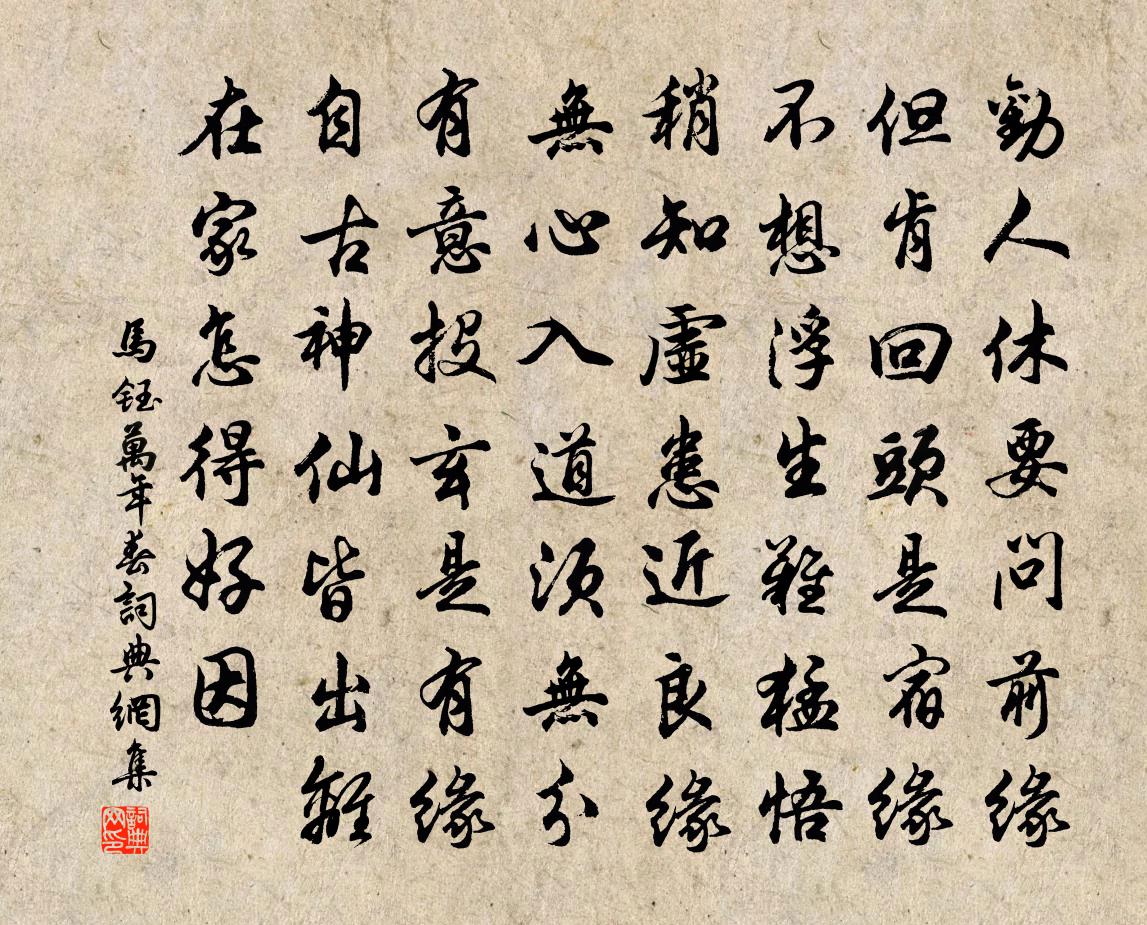 勸人休要問前緣
但肯回頭是宿緣
不想浮生難猛悟
稍知虛幻近良緣
無心入道須無分
有意投玄是有緣
自古神仙皆出離
在家怎得好因
馬鈺萬年春詞典網集
詞典网印